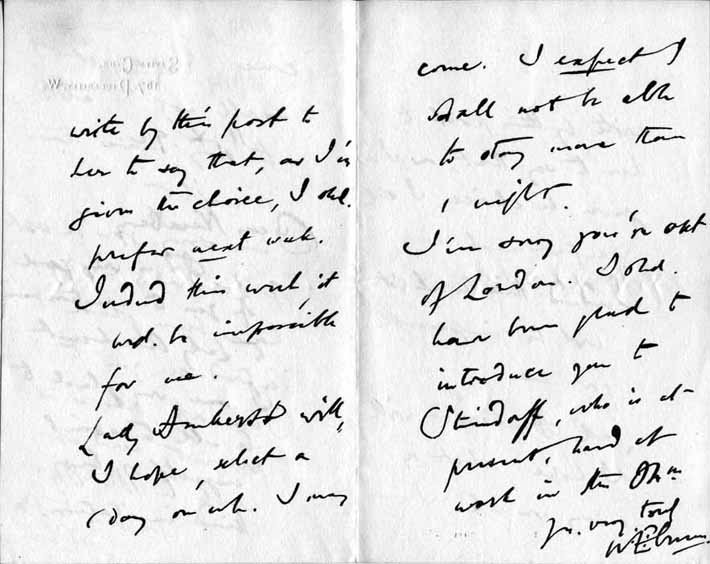 write by this post to
her to say that, as I'm
given the choice, I shd.
prefer next week.
Indeed this week, it
wd. be impossible
for me.
Lady Amherst will,
I hope, select a
day on wh. I may
come. I expect I
shall not be able
to stay more than
1 night.
I'm sorry you're out
of London. I shd.
have been glad to
introduce you to
Steindorff, who is at
present, hard at
work in the
yrs. very truly